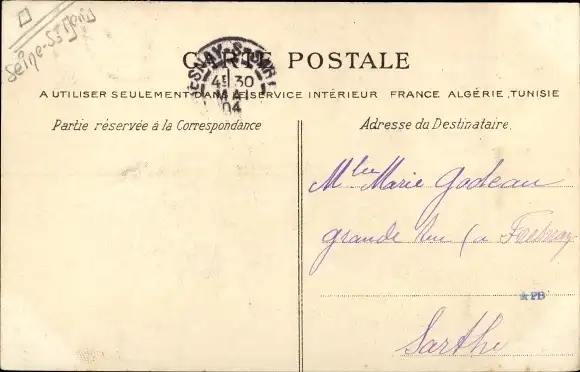 Seine-St Denis
CARTE POSTALE
FRESNAY-S-SARTHE
4E 30
MAI
04
A UTILISER SEULEMENT DANS LE SERVICE INTÉRIEUR FRANCE ALGÉRIE, TUNISIE
Partie réservée à la Correspondance
Adresse du Destinataire.
Mlle Marie Godeau
grande Rue (a Fresnay
APB
Sarthe